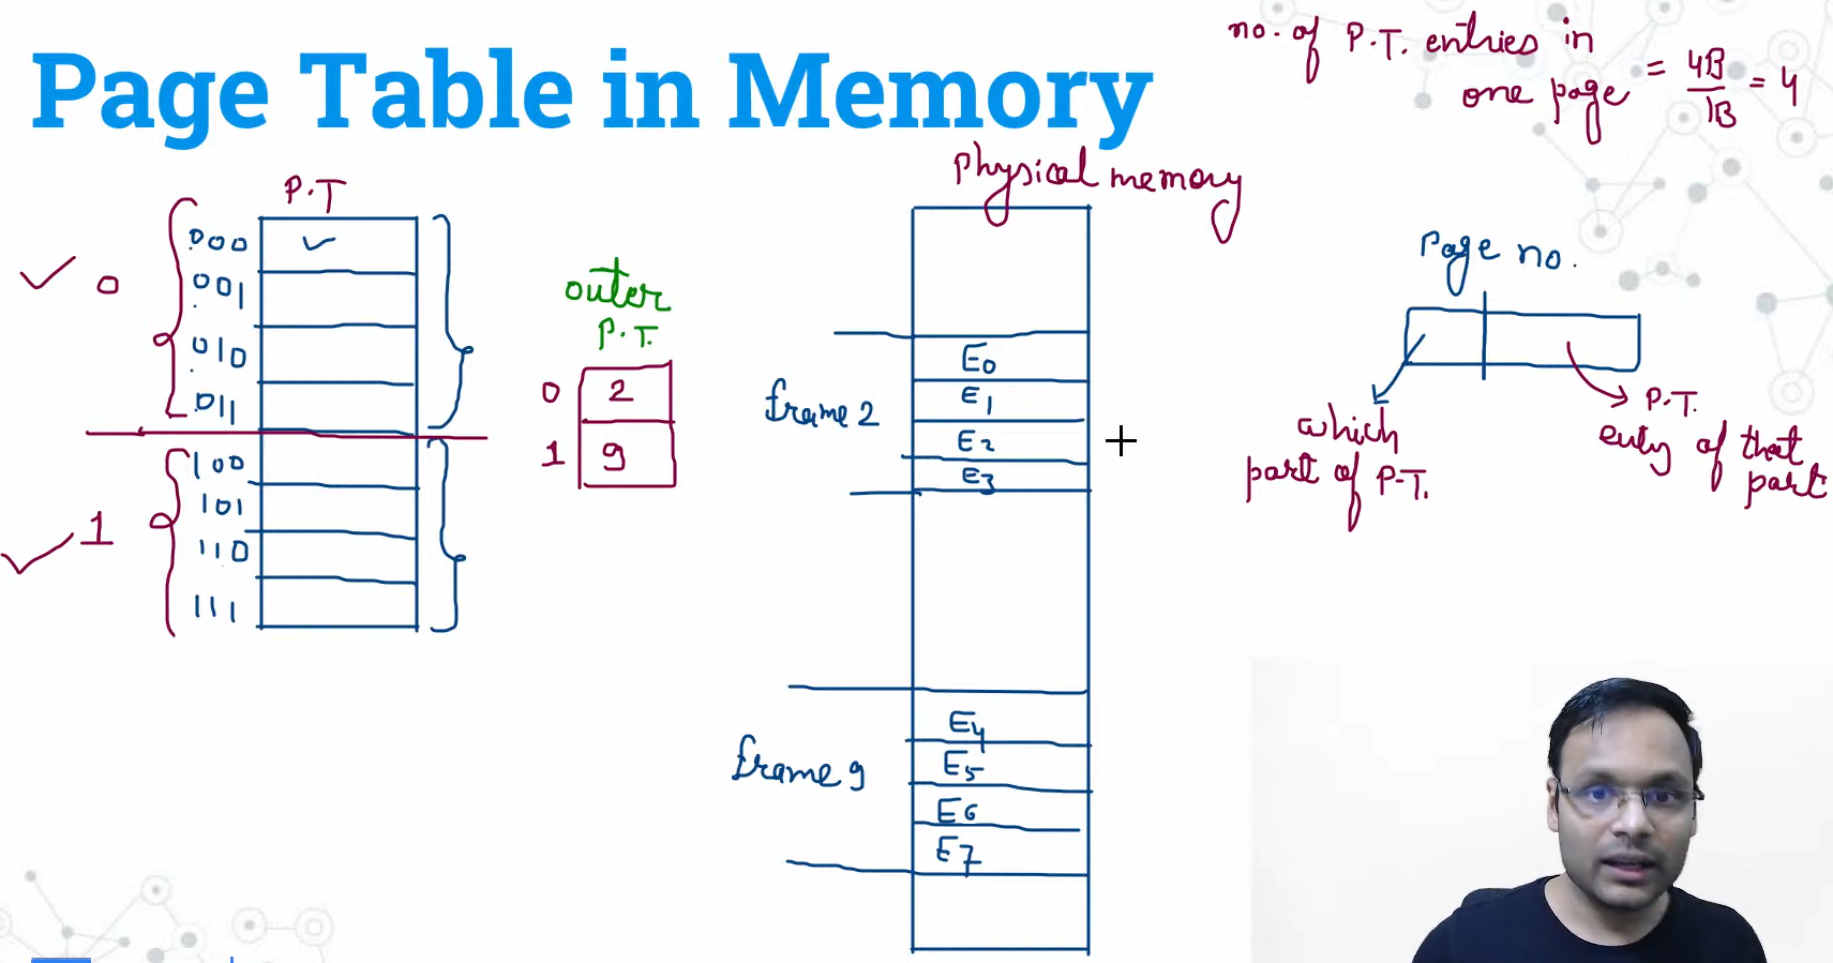 Page Table in Memory
no. of P.T. entries in
one page = 4B / 1B = 4
P.T
0
000
001
010
011
1
100
101
110
111
outer
P.T.
0 2
1 9
Physical memory
frame 2
E0
E1
E2
E3
frame 9
E4
E5
E6
E7
Page no.
which
part of P.T.
P.T.
entry of that
part